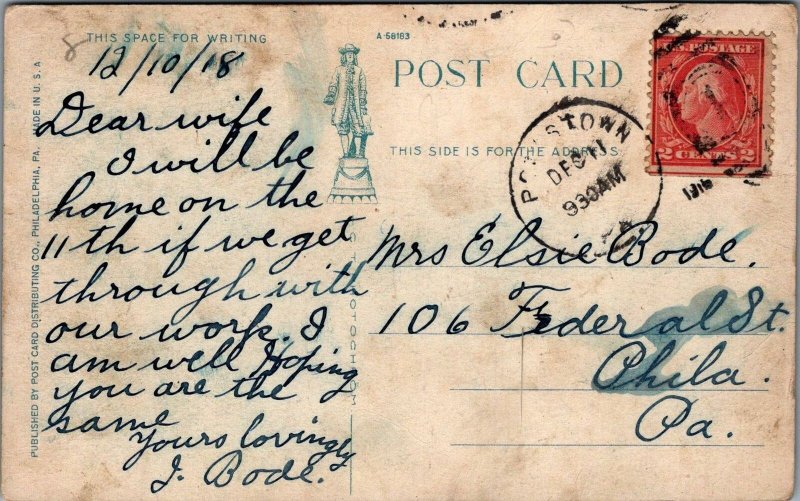 THIS SPACE FOR WRITING
A-58183
POST CARD
THIS SIDE IS FOR THE ADDRESS
12/10/18
Dear wife
I will be
home on the
11th if we get
through with
our work. I
am well Hoping
you are the
same
Yours lovingly
J. Bode.
POTTSTOWN
DEC 11
930AM
PA.
U.S. POSTAGE
2 CENTS 2
Mrs Elsie Bode.
106 Federal St.
Phila.
Pa.
PUBLISHED BY POST CARD DISTRIBUTING CO., PHILADELPHIA, PA. MADE IN U.S.A